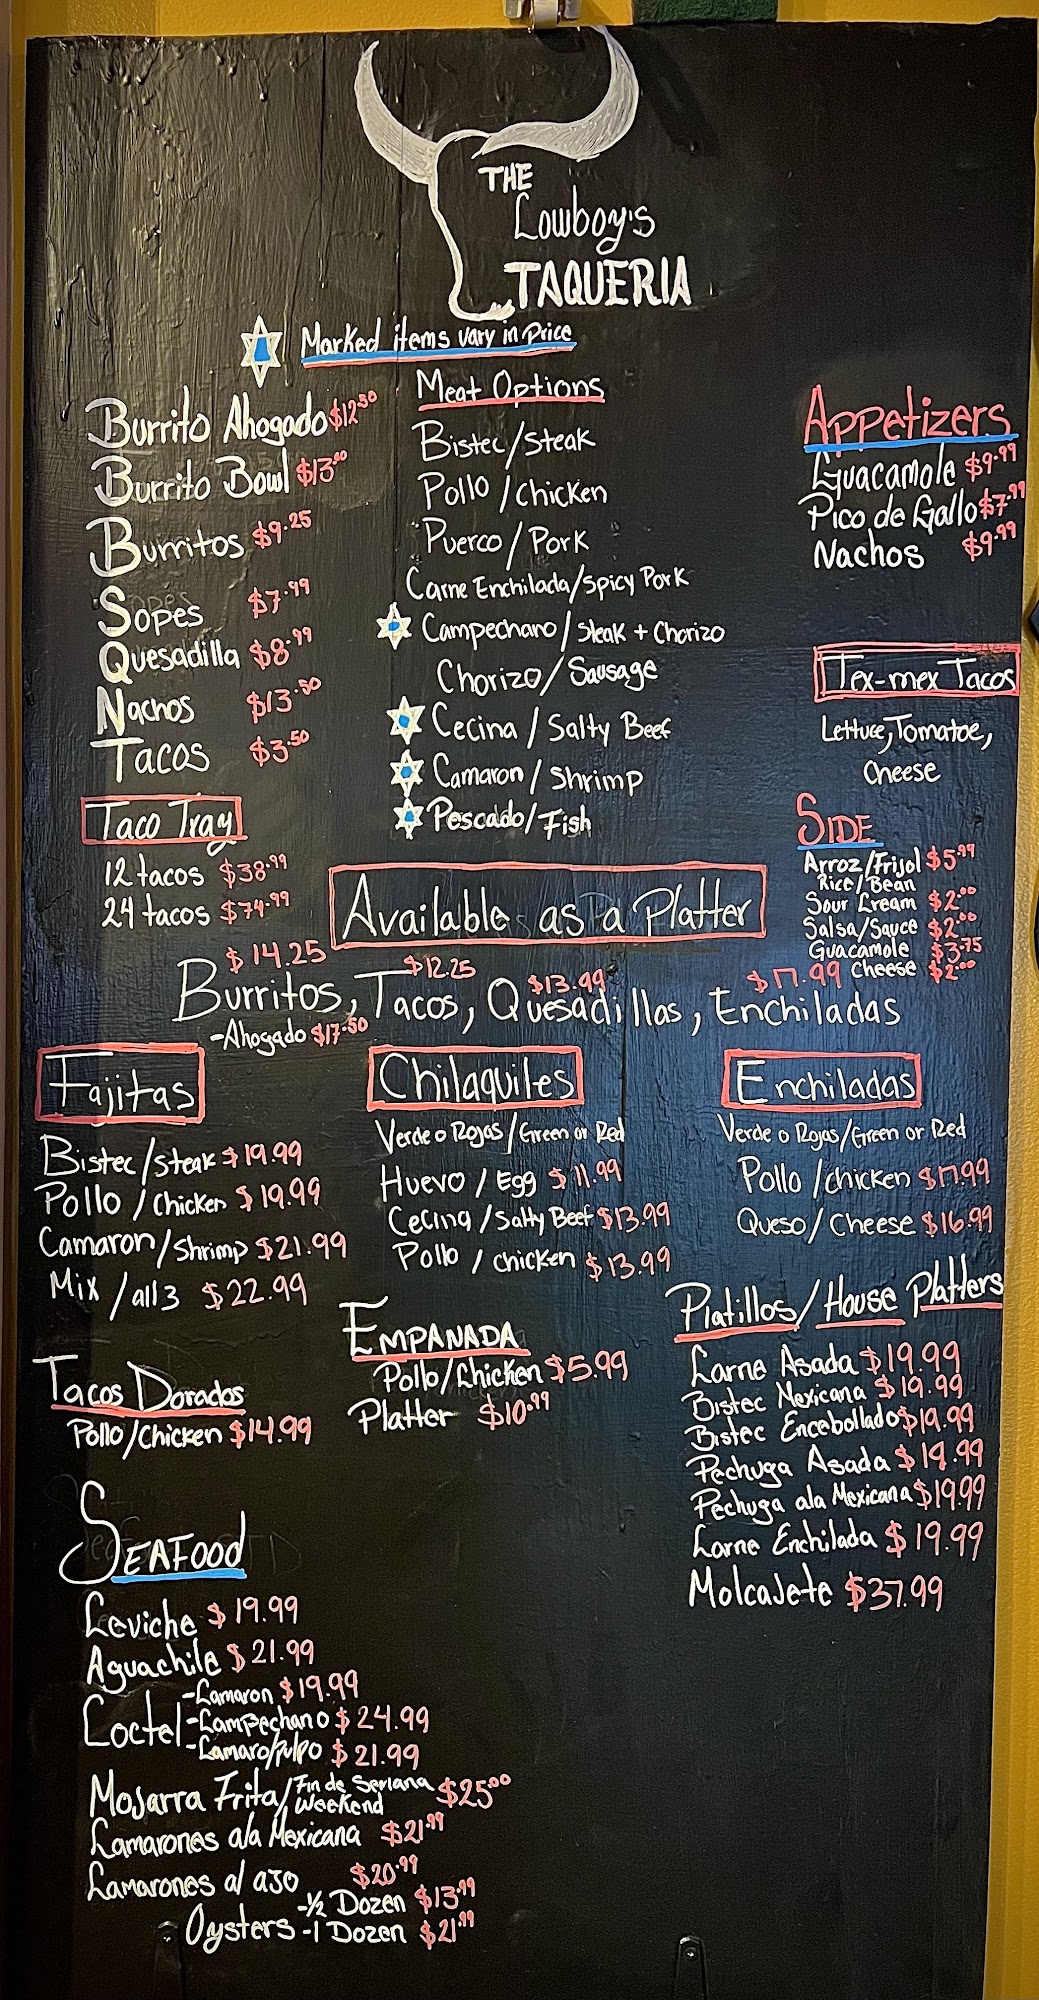 THE
Cowboy's
TAQUERIA
Marked items vary in price
Burrito Ahogado $12.50
Burrito Bowl $13.00
Burritos $9.25
Sopes $7.99
Quesadilla $8.99
Nachos $13.50
Tacos $3.50
Taco Tray
12 tacos $38.99
24 tacos $74.99
Meat Options
Bistec/Steak
Pollo/Chicken
Puerco/Pork
Carne Enchilada/Spicy Pork
Campechano/Steak + Chorizo
Chorizo/Sausage
Cecina/Salty Beef
Camaron/Shrimp
Pescado/Fish
Appetizers
Guacamole $9.99
Pico de Gallo $7.99
Nachos $9.99
Tex-mex Tacos
Lettuce, Tomatoe,
Cheese
SIDE
Arroz/Frijol $5.99
Rice/Bean
Sour Cream $2.00
Salsa/Sauce $2.00
Guacamole $3.75
Cheese $2.00
Available as a Platter
$14.25 $12.25 $13.99 $17.99
Burritos, Tacos, Quesadillas, Enchiladas
-Ahogado $17.50
Fajitas
Bistec/Steak $19.99
Pollo/Chicken $19.99
Camaron/Shrimp $21.99
Mix/all 3 $22.99
Chilaquiles
Verde o Rojas/Green or Red
Huevo/Egg $11.99
Cecina/Salty Beef $13.99
Pollo/chicken $13.99
Enchiladas
Verde o Rojas/Green or Red
Pollo/chicken $17.99
Queso/Cheese $16.99
Tacos Dorados
Pollo/Chicken $14.99
EMPANADA
Pollo/Chicken $5.99
Platter $10.99
Platillos/House Platters
Carne Asada $19.99
Bistec Mexicana $19.99
Bistec Encebollado $19.99
Pechuga Asada $19.99
Pechuga ala Mexicana $19.99
Carne Enchilada $19.99
Molcajete $37.99
SEAFOOD
Ceviche $19.99
Aguachile $21.99
Coctel -Camaron $19.99
-Campechano $24.99
-Camaro/pulpo $21.99
Mojarra Frita/Fin de Semana $25.00
Weekend
Camarones ala Mexicana $21.99
Camarones al ajo $20.99
Oysters -1/2 Dozen $13.99
-1 Dozen $21.99